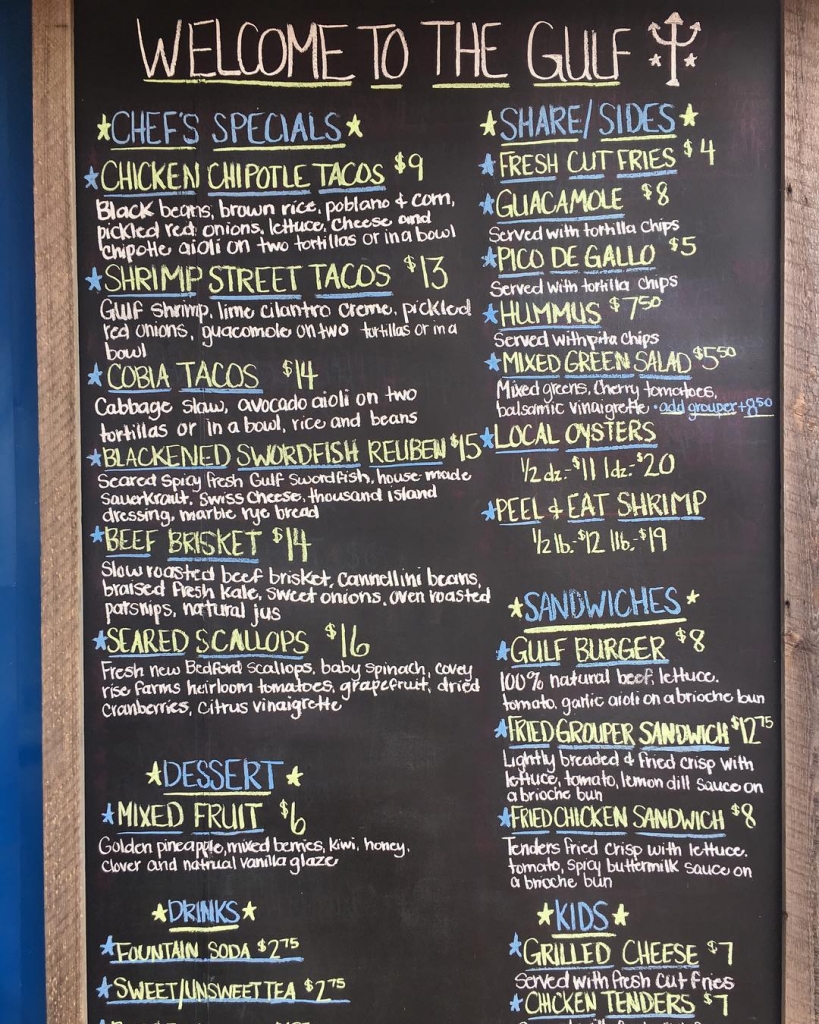 WELCOME TO THE GULF
CHEF'S SPECIALS
CHICKEN CHIPOTLE TACOS $9
Black beans, brown rice, poblano & corn,
pickled red onions, lettuce, cheese and
chipotle aioli on two tortillas or in a bowl
SHRIMP STREET TACOS $13
Gulf shrimp, lime cilantro creme, pickled
red onions, guacamole on two tortillas or in a
bowl
COBIA TACOS $14
Cabbage slaw, avocado aioli on two
tortillas or in a bowl, rice and beans
BLACKENED SWORDFISH REUBEN $15
Seared spicy fresh Gulf Swordfish, house made
sauerkraut, swiss cheese, thousand island
dressing, marble rye bread
BEEF BRISKET $14
Slow roasted beef brisket, cannellini beans,
braised fresh kale, sweet onions, oven roasted
parsnips, natural jus
SEARED SCALLOPS $16
Fresh new Bedford scallops, baby spinach, covey
rise farms heirloom tomatoes, grapefruit, dried
cranberries, citrus vinaigrette
DESSERT
MIXED FRUIT $6
Golden pineapple, mixed berries, kiwi, honey,
clover and natrual vanilla glaze
DRINKS
FOUNTAIN SODA $2.75
SWEET/UNSWEET TEA $2.75
SHARE/SIDES
FRESH CUT FRIES $4
GUACAMOLE $8
Served with tortilla chips
PICO DE GALLO $5
Served with tortilla chips
HUMMUS $7.50
Served with pita chips
MIXED GREEN SALAD $5.50
Mixed greens, Cherry tomatoes,
balsamic vinaigrette • add grouper +8.50
LOCAL OYSTERS
1/2 dz.-$11 1dz.-$20
PEEL & EAT SHRIMP
1/2 lb.-$12 1lb.-$19
SANDWICHES
GULF BURGER $8
100% natural beef, lettuce,
tomato, garlic aioli on a brioche bun
FRIED GROUPER SANDWICH $12.75
Lightly breaded & fried crisp with
lettuce, tomato, lemon dill sauce on
a brioche bun
FRIED CHICKEN SANDWICH $8
Tenders fried crisp with lettuce,
tomato, spicy buttermilk sauce on
a brioche bun
KIDS
GRILLED CHEESE $7
Served with fresh cut fries
CHICKEN TENDERS $7